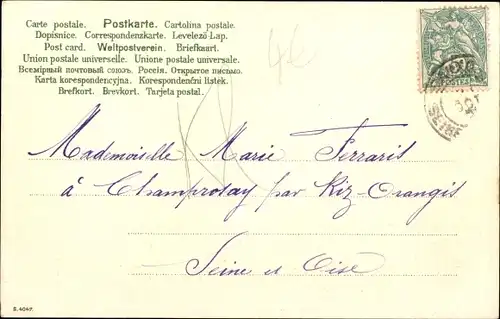 Carte postale. Postkarte. Cartolina postale.
Dopisnice. Correspondenzkarte. Levelező-Lap.
Post card. Weltpostverein. Briefkaart.
Union postale universelle. Unione postale universale.
Всемірный почтовый союзъ. Россія. Открытое письмо.
Karta korespondencyjna. Korespondenční lístek.
Brefkort. Brevkort. Tarjeta postal.
Mademoiselle Marie Ferraris
à Champrosay par Riz-Orangis
Seine et Oise
S. 4047.